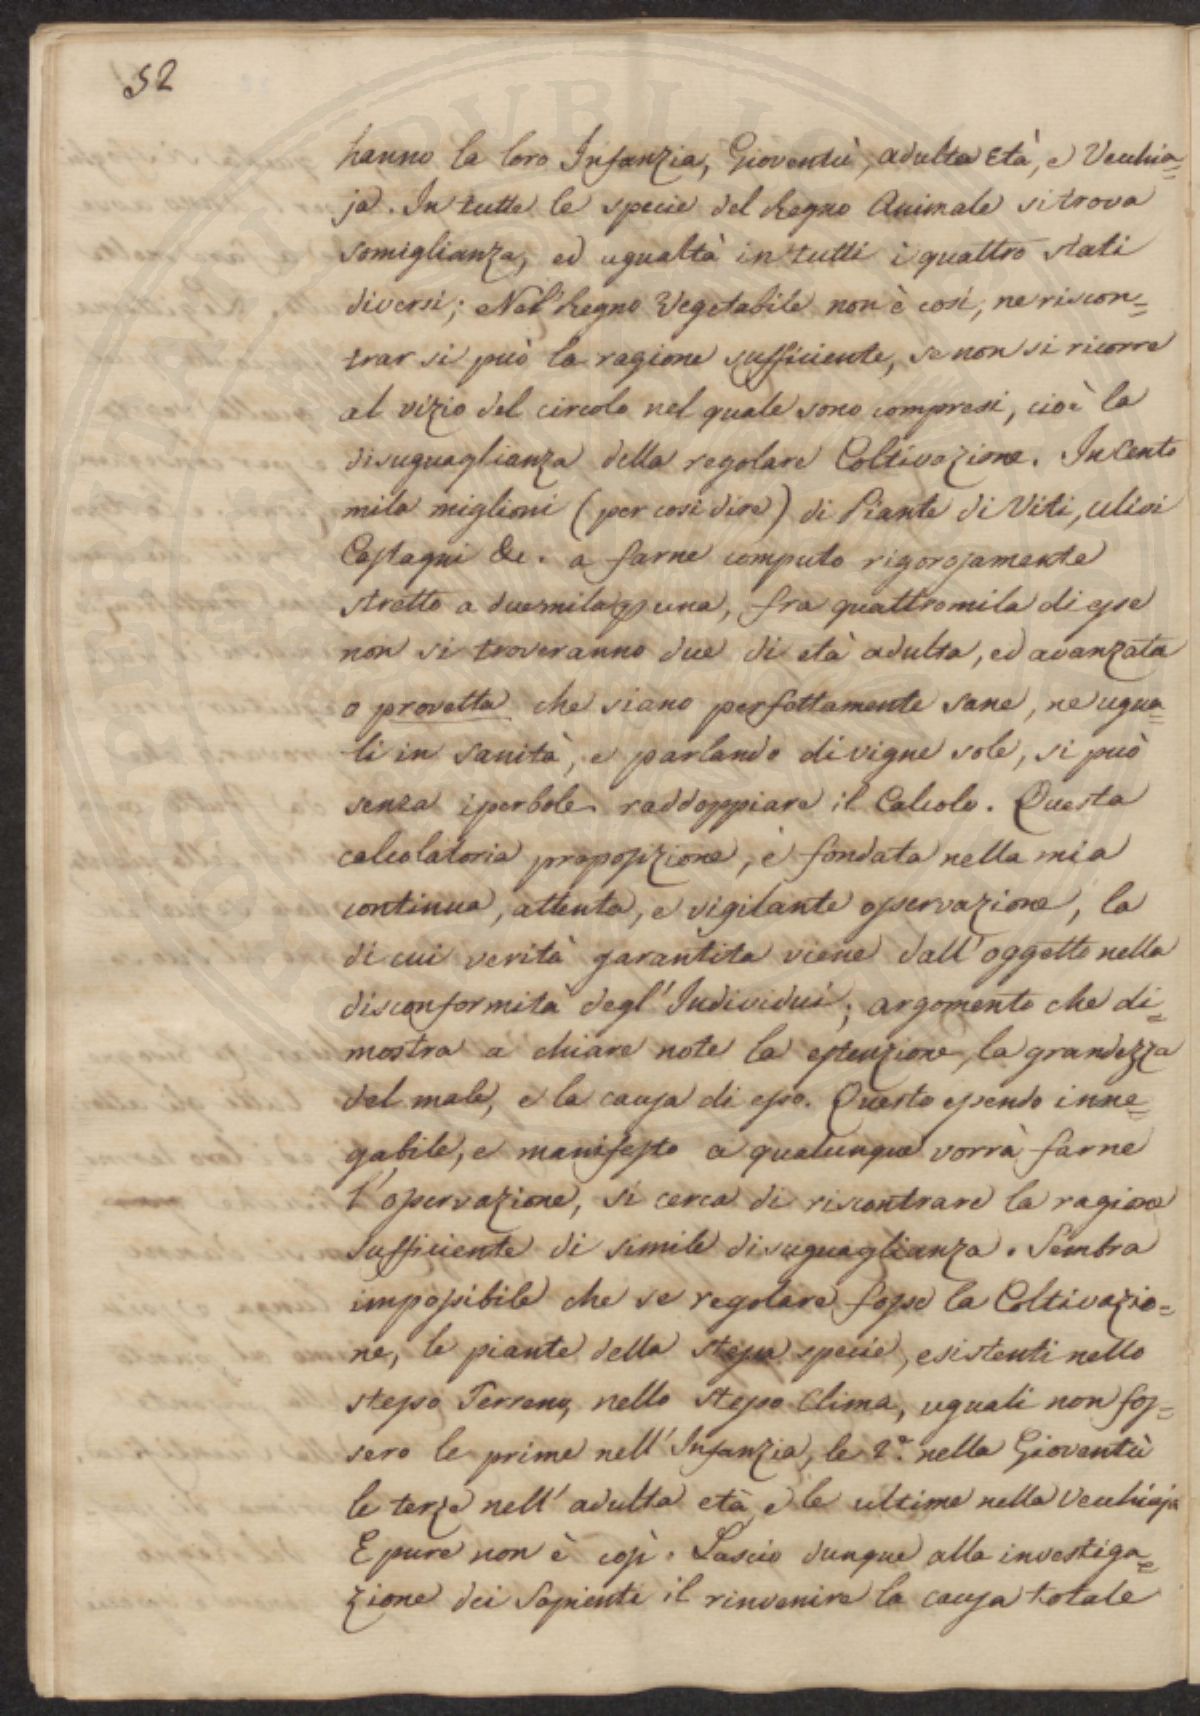 52
hanno la loro Infanzia, Gioventù, adulta Età, e Vecchia=
ja. In tutte le specie del Regno Animale si trova
somiglianza, ed ugualtà in tutti i quattro stati
diversi; Nel Regno Vegetabile non è così, ne riscon=
trar si può la ragione sufficiente, se non si ricorre
al vizio del circolo nel quale sono compresi, cioè la
disuguaglianza della regolare Coltivazione. In Cento
mila miglioni (per così dire) di Piante di Viti, Ulivi
Castagni &c. a farne computo rigorosamente
stretto a duemila una, fra quattromila di esse
non si troveranno due di età adulta, ed avanzata
o provetta che siano perfettamente sane, ne ugua=
li in sanità, e parlando di vigne sole, si può
senza iperbole raddoppiare il Calcolo. Questa
calcolatoria proposizione, è fondata nella mia
continua, attenta, e vigilante osservazione, la
di cui verità garantita viene dall'oggetto nella
disconformità degl'Individui; argomento che di=
mostra a chiare note la estenzione, la grandezza
del male, e la causa di esso. Questo essendo inne=
gabile, e manifesto a qualunque vorrà farne
l'osservazione, si cerca di riscontrare la ragione
sufficiente di simile disuguaglianza. Sembra
impossibile che se regolare fosse la Coltivazio=
ne, le piante della stessa specie, esistenti nello
stesso Terreno, nello stesso Clima, uguali non fos=
sero le prime nell'Infanzia, le 2.e nella Gioventù
le terze nell'adulta età, e le ultime nella Vecchiaja
E pure non è così. Lascio dunque alla investiga=
zione dei Sapienti il rinvenire la causa totale